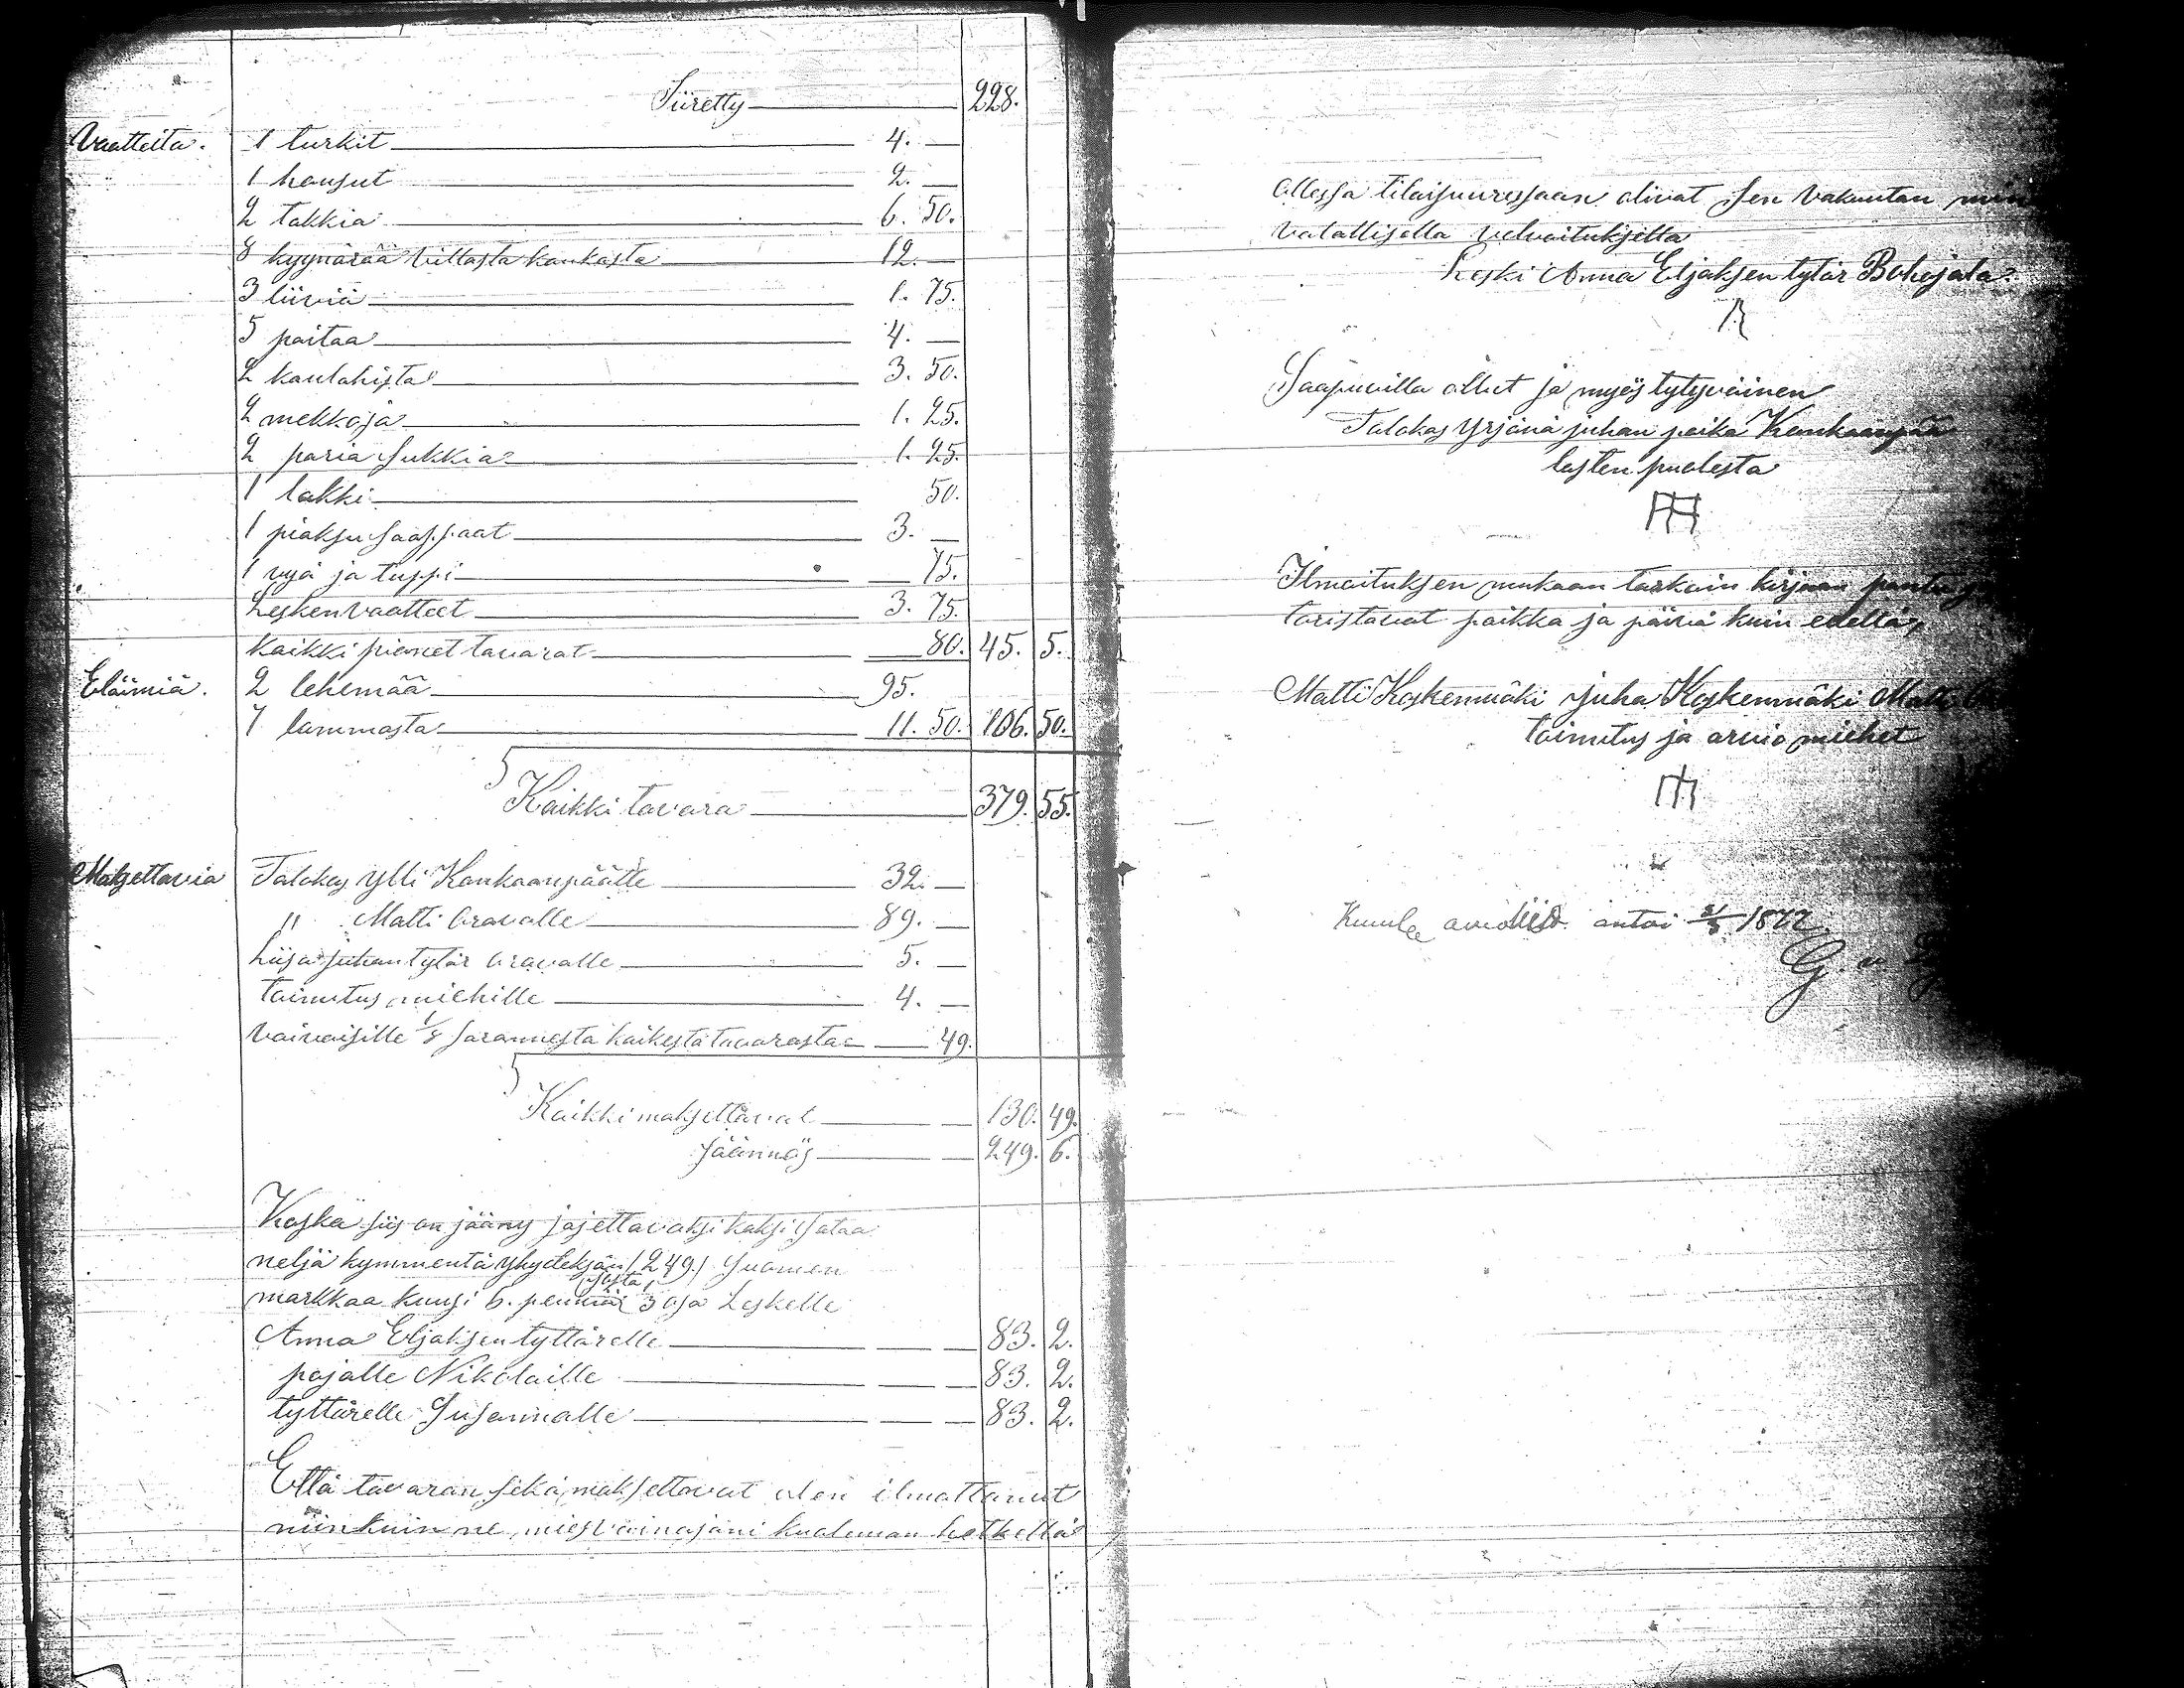 Siiretty 228.
Vaatteita. 1 turkit 4. —
1 housut 2. —
2 takkia 6. 50.
8 kyynärää villasta kankasta 12. —
3 liiviä 1. 75.
5 paitaa 4. —
2 kaulahista 3. 50.
2 mekkoja 1. 25.
2 paria sukkia 1. 25.
1 lakki 50.
1 piaksusaappaat 3. —
1 vyä ja tuppi — 75.
Leskenvaatteet 3. 75.
kaikki pienet tavarat — 80. 45. 5.
Eläimiä. 2 lehemää 95.
7 lammasta 11. 50. 106. 50.
Kaikki tavara 379. 55.
Maksettavia Talokas ylli Kankaanpäälle 32. —
" Matti Oravalle 89. —
Liisa Juhantytär Oravalle 5. —
toimitus miehille 4. —
vaivaisille 1/8 sarannesta kaikesta tavarasta — 49.
Kaikki maksettavat — 130. 49.
Jäännös — 249. 6.
Koska siis on jääny jajettavaksi kaksi sataa
neljä kymmentä yhydeksän /249/ Suomen
markkaa kuusi 6. penniä josta 3 osa Leskelle
Anna Eljaksen tyttärelle 83. 2.
pojalle Nikolaille 83. 2.
tyttärelle Susannalle 83. 2.
Että tavaran sekä maksettavat olen ilmottanut
niinkuin ne miesvainajani kualeman hetkellä
ollessa tilaisuuressaan olivat sen vakuutan
valallisella velvoituksella
Leski Anna Eljaksen tytär Bohojala.
Saapuvilla ollut ja myös tytyväinen
Talokas Yrjänä juhan poika Kankaanpää
lasten puolesta
Ilmoituksen mukaan tarkoin kirjaan pantu
toristavat paikka ja päivä kuin edellä,
Matti Koskenmäki Juha Koskenmäki Matti
toimitus ja arvio miehet
antoi 1872.
G.